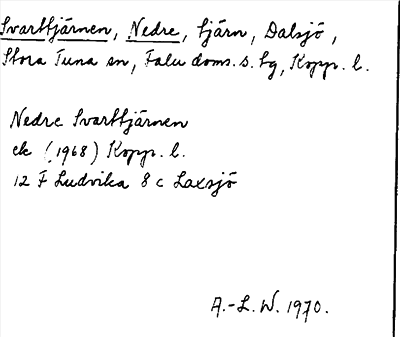 Svarttjärnen, Nedre, tjärn, Dalsjö,
Stora Tuna sn, Falu doms. s. tg, Kopp. l.
Nedre Svarttjärnen
ek (1968) Kopp. l.
12 F Ludvika 8 c Laxsjö
A.-L. W. 1970.